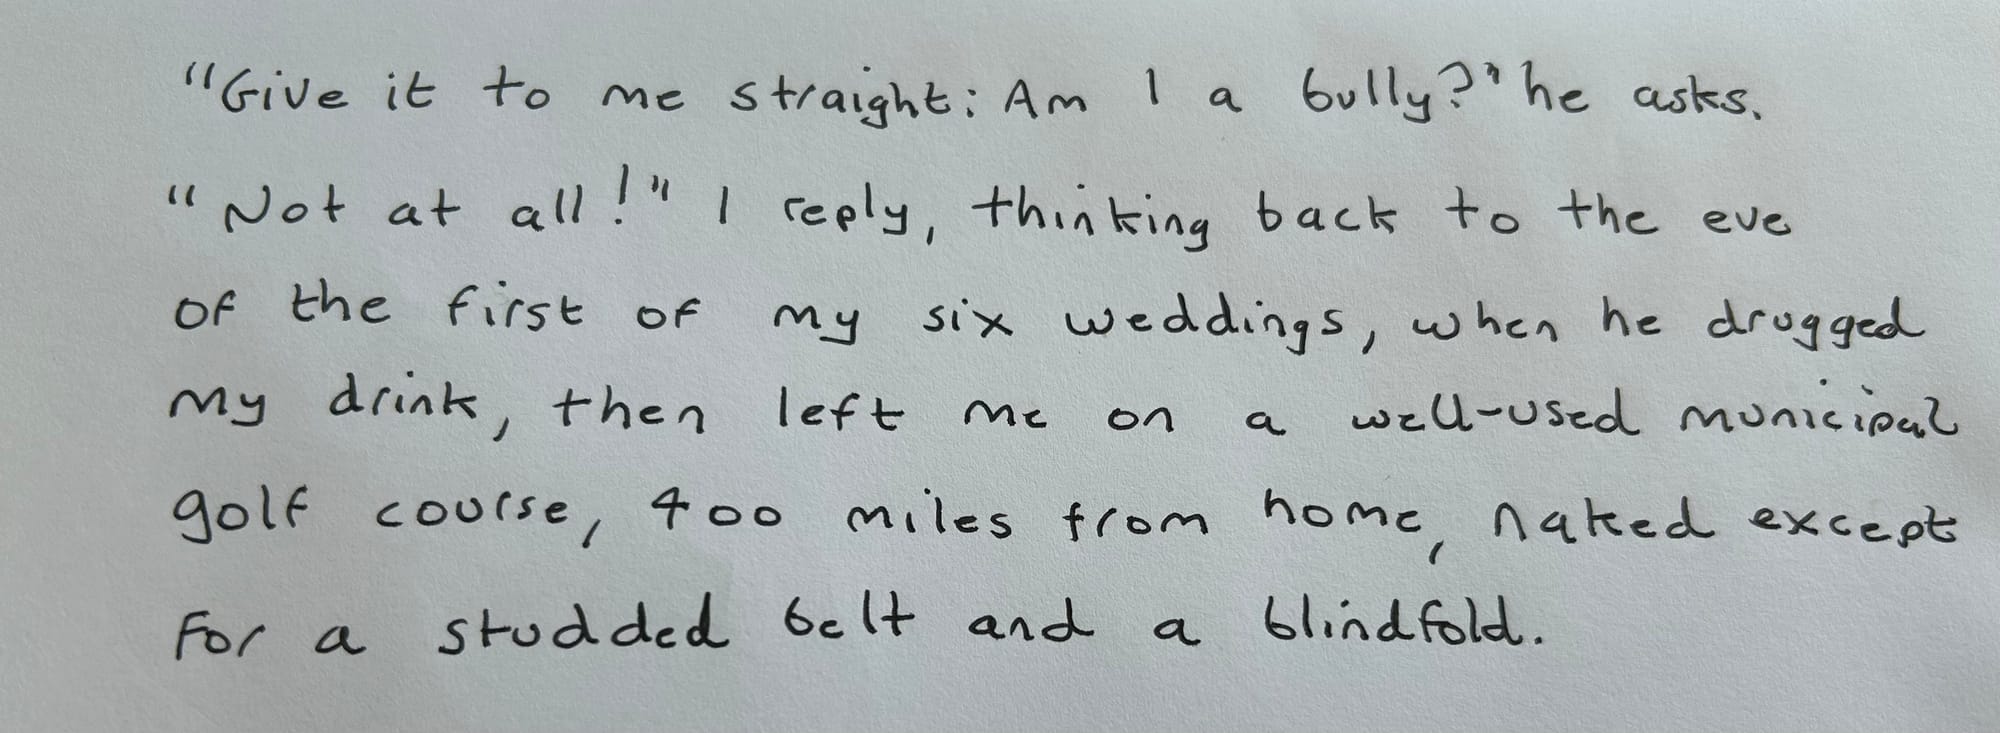 "Give it to me straight: Am I a bully?" he asks.
"Not at all!" I reply, thinking back to the eve
of the first of my six weddings, when he drugged
my drink, then left me on a well-used municipal
golf course, 400 miles from home, naked except
for a studded belt and a blindfold.